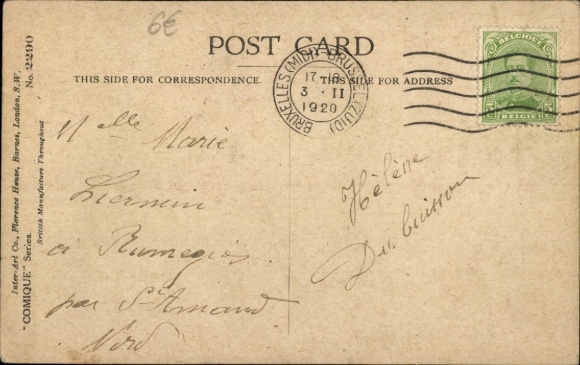 6€
POST CARD
THIS SIDE FOR CORRESPONDENCE.
THIS SIDE FOR ADDRESS
BRUXELLES (MIDI) BRUSSEL (ZUID)
17-18
3 · II
1920
BELGIQUE
5 5
BELGIE
Inter-Art Co., Florence House, Barnes, London, S.W.
"COMIQUE" Series.
British Manufacture Throughout
No. 2290
Melle Marie
à Rumegies
par St Amand
Nord
Hélène